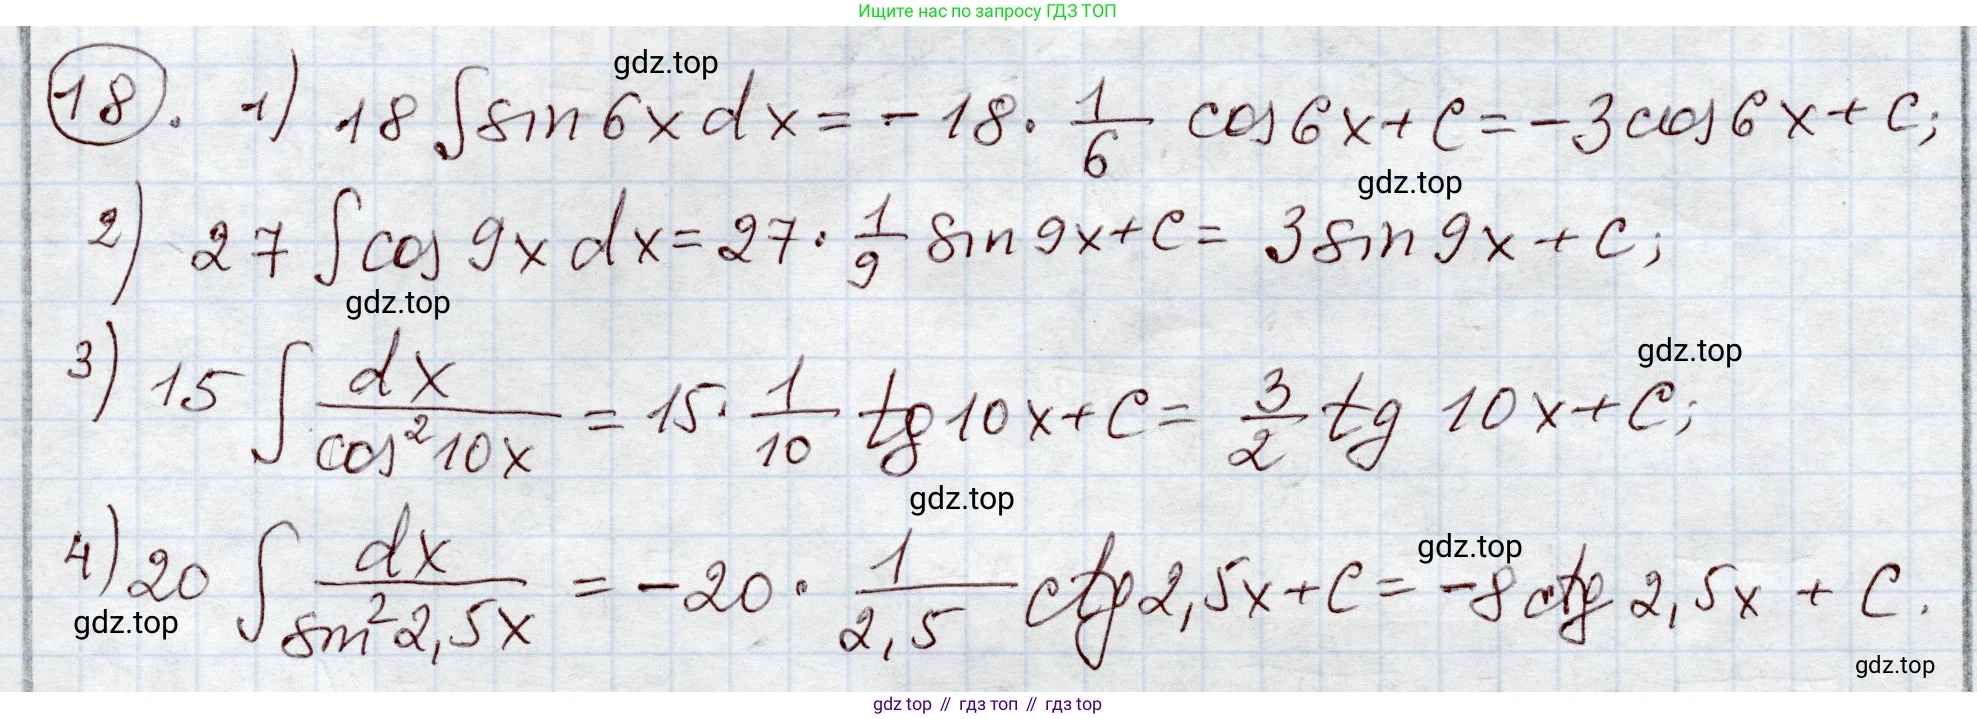 Ищите нас по запросу ГДЗ ТОП
gdz.top
18. 1) 18 ∫ sin 6x dx = - 18 · 1/6 cos 6x + C = -3 cos 6x + C;
gdz.top
2) 27 ∫ cos 9x dx = 27 · 1/9 sin 9x + C = 3 sin 9x + C;
gdz.top
gdz.top
3) 15 ∫ dx/cos² 10x = 15 · 1/10 tg 10x + C = 3/2 tg 10x + C;
gdz.top
gdz.top
4) 20 ∫ dx/sin² 2,5x = -20 · 1/2,5 ctg 2,5x + C = -8 ctg 2,5x + C.
gdz.top
gdz.top
gdz top // гдз топ // гдз top